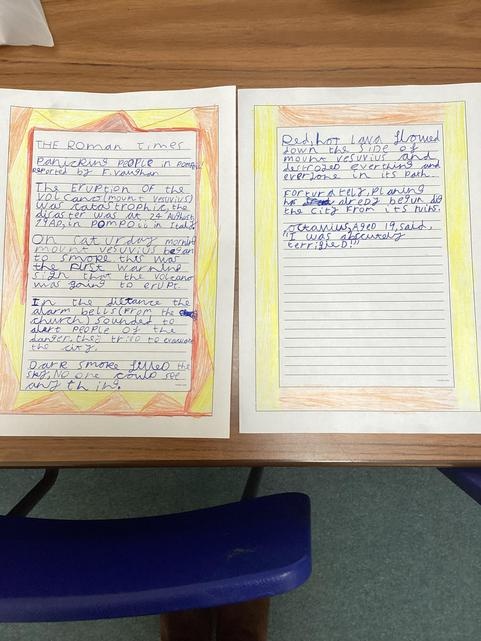 THE ROMAN TIMES
Panicking PEOPLE in POMPeii
reported by F.vaughan
The Eruption OF the
VOLcano(mount vesuvius)
was catastrophic, the
disaster was at 24 AUgust
79AD, in POMPOii in Italy
On Saturday morning
mount vesuvius began
to smoke this was
the first warning
sign that the volcano
was going to erupt.
In the distance the
alarm bells(from the
church) sounded to
alert PEOPLE OF the
danger, they tried to evacuate
the city.
Dark smoke filled the
sky, NO one could see
any thing.
Red, hot lava flowed
down the side of
mount vesuvius and
destroyed everthing and
everyone in its path.
Fortunately, Planing
has alredy begun
the city from its ruins.
"Octavius, Aged 19, said,
"I was absoutely
terrified!"